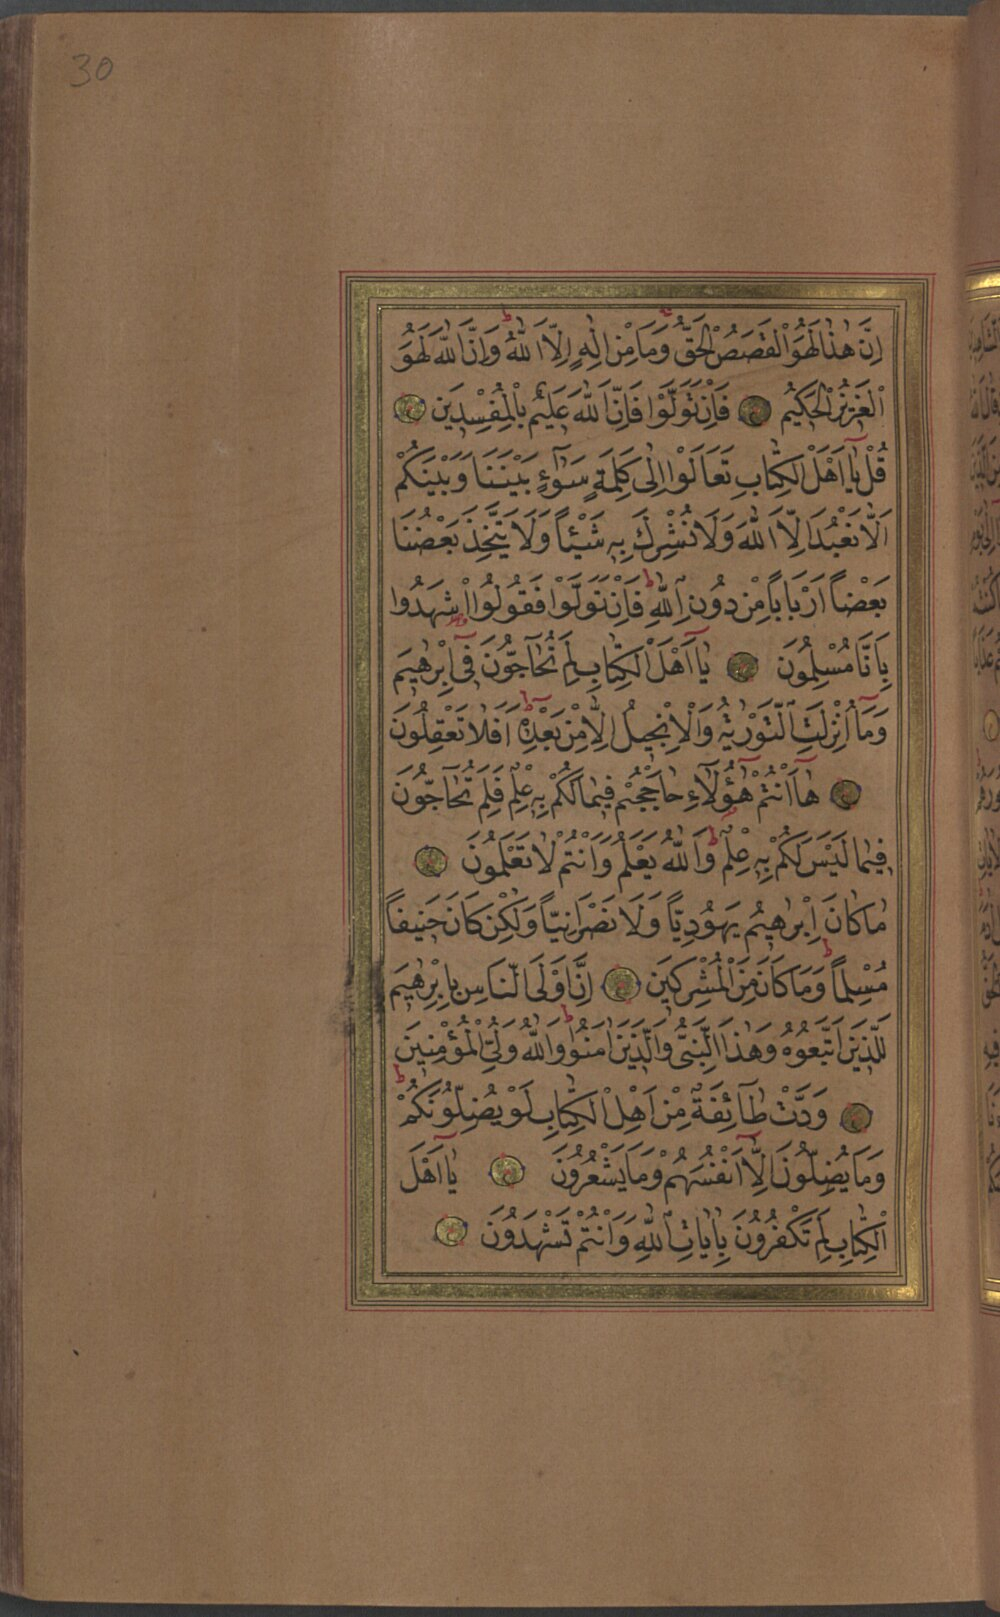 30
اِنَّ هٰذَا لَهُوَ الْقَصَصُ الْحَقُّ وَمَا مِنْ اِلٰهٍ اِلَّا اللّٰهُ وَاِنَّ اللّٰهَ لَهُوَ
الْعَزِيزُ الْحَكِيمُ فَاِنْ تَوَلَّوْا فَاِنَّ اللّٰهَ عَلِيمٌ بِالْمُفْسِدِينَ
قُلْ يَٓا اَهْلَ الْكِتَابِ تَعَالَوْا اِلٰى كَلِمَةٍ سَوَٓاءٍ بَيْنَنَا وَبَيْنَكُمْ
اَلَّا نَعْبُدَ اِلَّا اللّٰهَ وَلَا نُشْرِكَ بِهٖ شَيْـًٔا وَلَا يَتَّخِذَ بَعْضُنَا
بَعْضًا اَرْبَابًا مِنْ دُونِ اللّٰهِ فَاِنْ تَوَلَّوْا فَقُولُوا اشْهَدُوا
بِاَنَّا مُسْلِمُونَ يَٓا اَهْلَ الْكِتَابِ لِمَ تُحَٓاجُّونَ فِٓى اِبْرٰهِيمَ
وَمَٓا اُنْزِلَتِ التَّوْرٰيةُ وَالْاِنْجِيلُ اِلَّا مِنْ بَعْدِهٖ اَفَلَا تَعْقِلُونَ
هَٓا اَنْتُمْ هٰٓؤُلَٓاءِ حَاجَجْتُمْ فِيمَا لَكُمْ بِهٖ عِلْمٌ فَلِمَ تُحَٓاجُّونَ
فِيمَا لَيْسَ لَكُمْ بِهٖ عِلْمٌ وَاللّٰهُ يَعْلَمُ وَاَنْتُمْ لَا تَعْلَمُونَ
مَا كَانَ اِبْرٰهِيمُ يَهُودِيًّا وَلَا نَصْرَانِيًّا وَلٰكِنْ كَانَ حَنِيفًا
مُسْلِمًا وَمَا كَانَ مِنَ الْمُشْرِكِينَ اِنَّ اَوْلَى النَّاسِ بِاِبْرٰهِيمَ
لَلَّذِينَ اتَّبَعُوهُ وَهٰذَا النَّبِىُّ وَالَّذِينَ اٰمَنُوا وَاللّٰهُ وَلِىُّ الْمُؤْمِنِينَ
وَدَّتْ طَٓائِفَةٌ مِنْ اَهْلِ الْكِتَابِ لَوْ يُضِلُّونَكُمْ
وَمَا يُضِلُّونَ اِلَّٓا اَنْفُسَهُمْ وَمَا يَشْعُرُونَ يَٓا اَهْلَ
الْكِتَابِ لِمَ تَكْفُرُونَ بِاٰيَاتِ اللّٰهِ وَاَنْتُمْ تَشْهَدُونَ